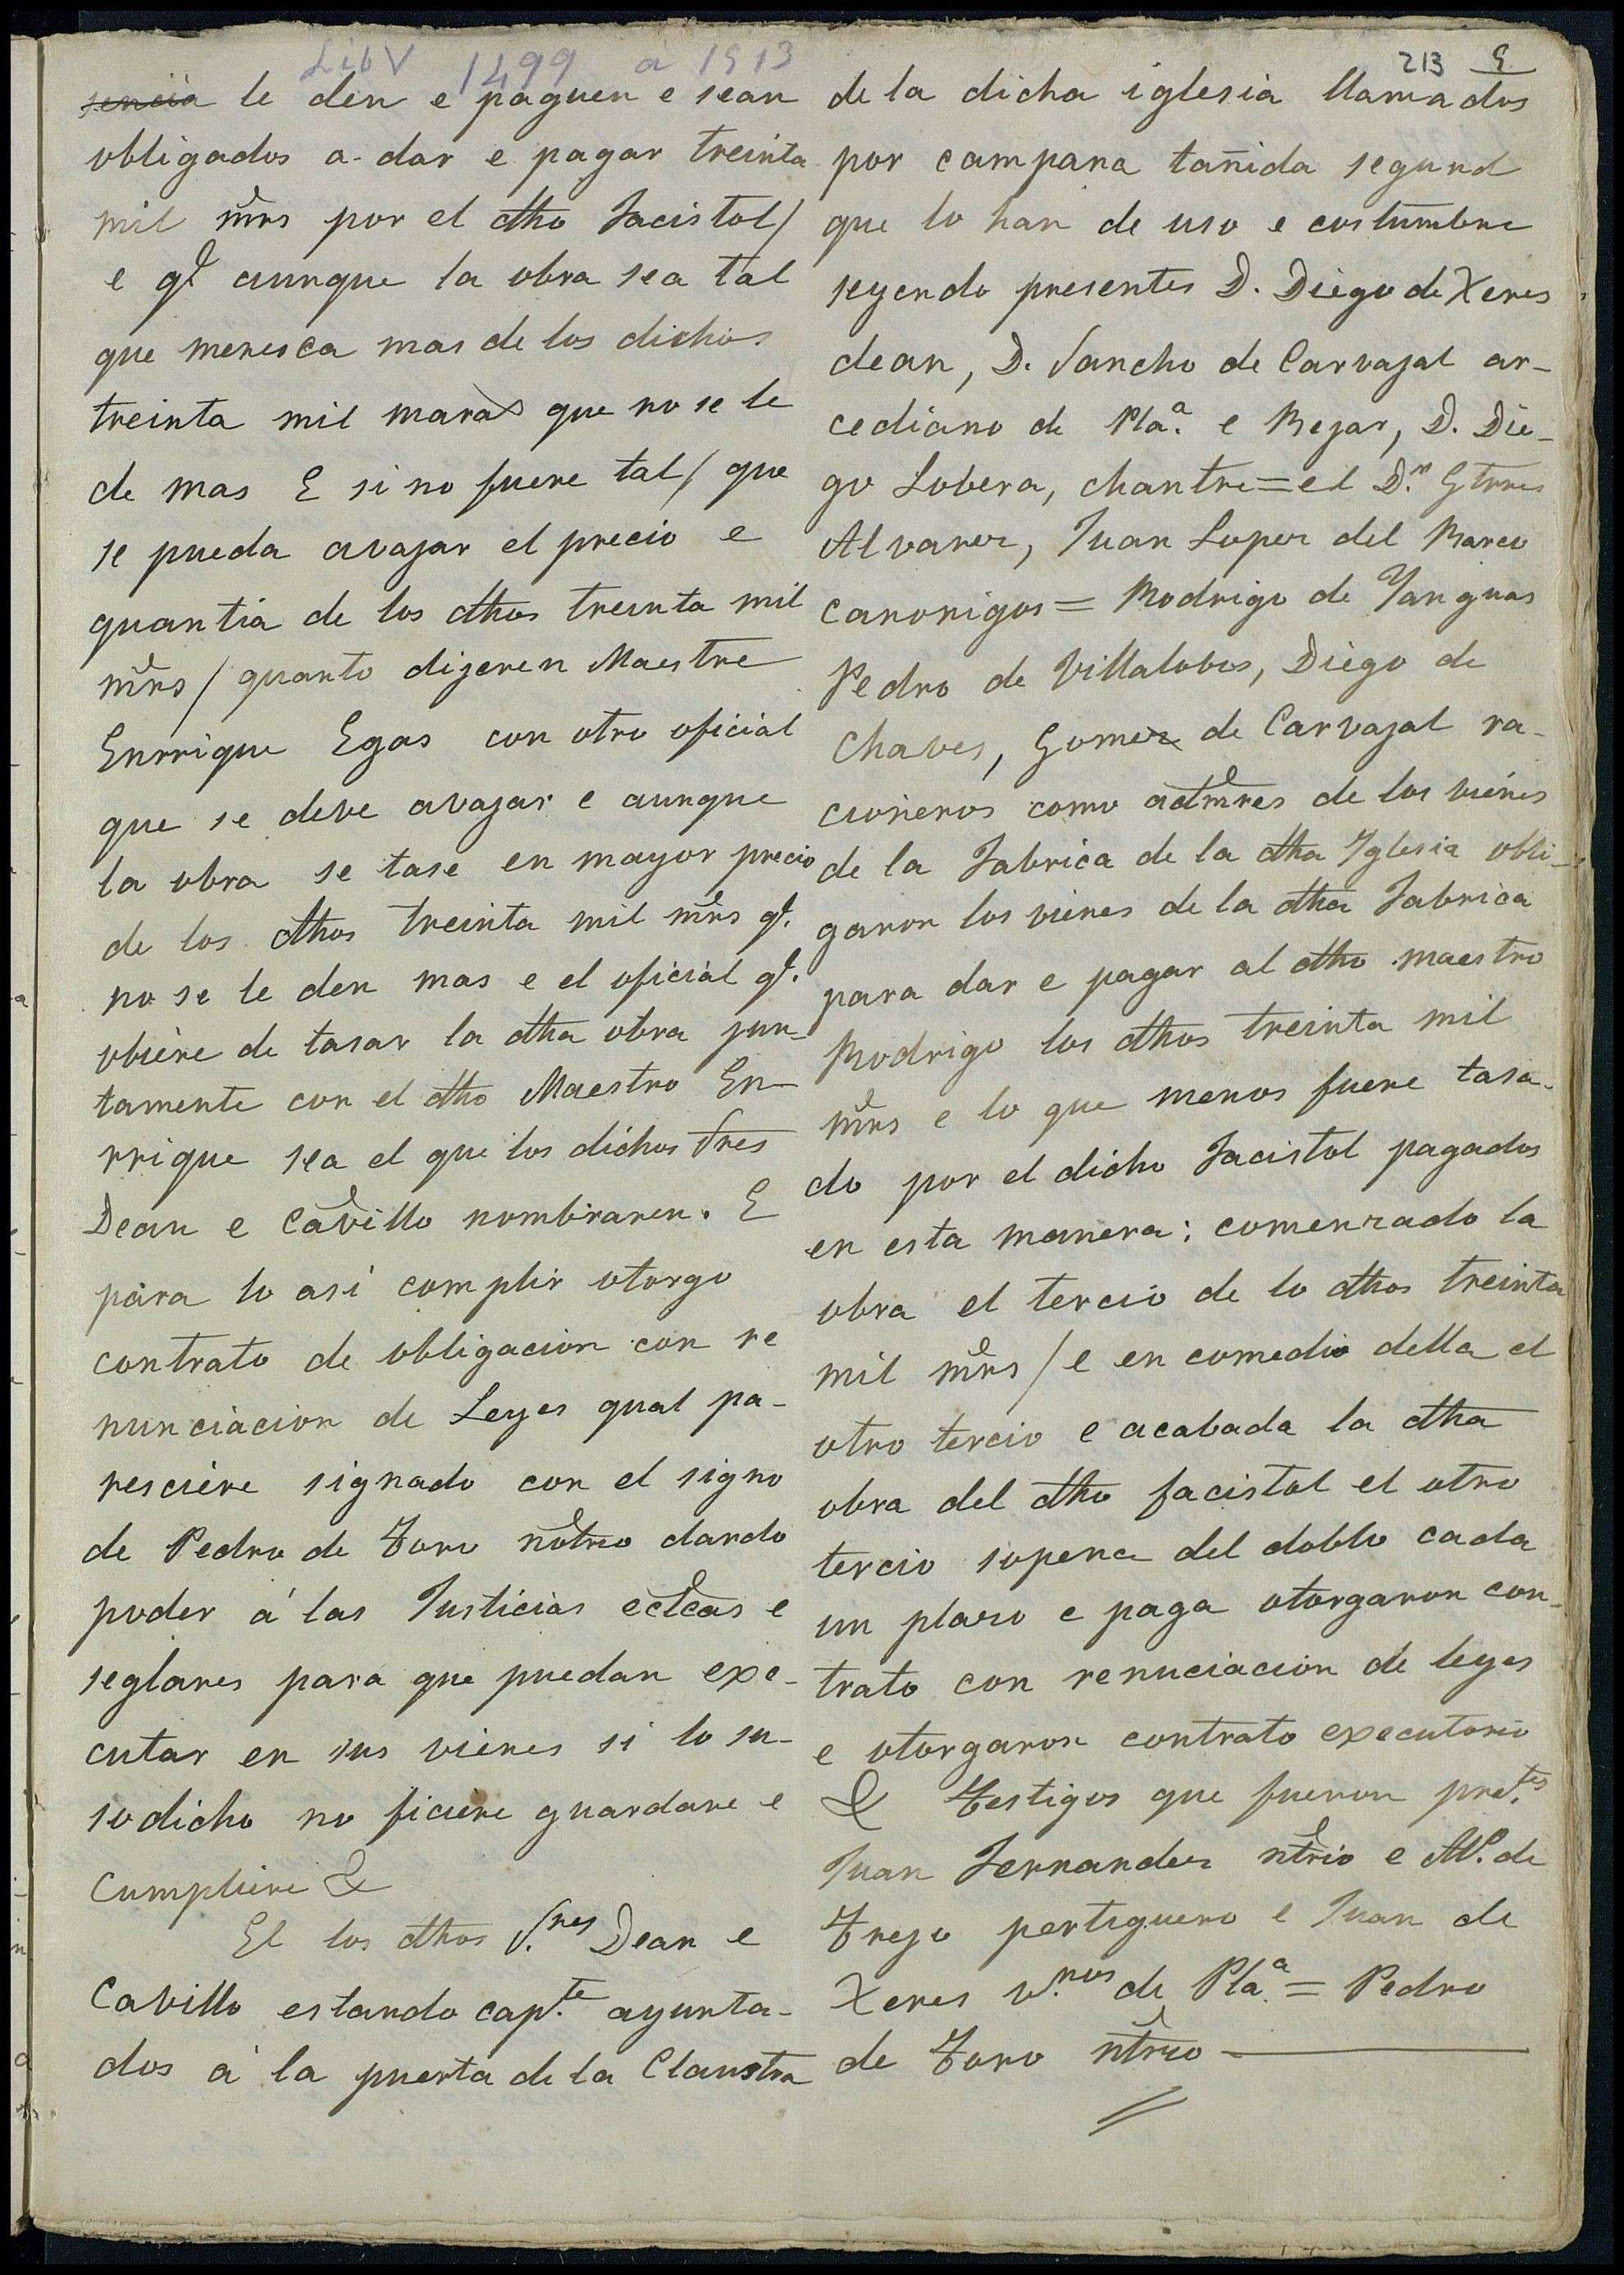 Lib V 1499 a 1513
213 9
sencia le den e paguen e sean
obligados a dar e pagar treinta
mil mrs por el dho Facistol/
e q.e aunque la obra sea tal
que meresca mas de los dichos
treinta mil maras que no se le
de mas E si no fuere tal/ que
se pueda avajar el precio e
quantia de los dhos treinta mil
mrs/ quanto digeren Maestre
Enrrique Egas con otro oficial
que se deve avajar e aunque
la obra se tase en mayor precio
de los dhos treinta mil mrs q.e
no se le den mas e el oficial q.e
obiere de tasar la dha obra jun-
tamente con el dho Maestro En-
rrique sea el que los dichos Sres
Dean e Cavillo nombraren. E
para lo asi complir otorgo
contrato de obligacion con re
nunciacion de Leyes qual pa-
resciere signado con el signo
de Pedro de Toro notrio dando
poder á las Justicias eclcas e
seglares para que puedan exe-
cutar en sus vienes si lo su-
sodicho no ficiere guardare e
cumpliere &
El los dhos S.res Dean e
Cavillo estando cap.te ayunta-
dos á la puerta de la Claustra
de la dicha iglesia llamados
por campana tañida segund
que lo han de uso e costumbre
seyendo presentes D. Diego de Xeres
dean, D. Sancho de Carvajal ar-
cediano de Pla.a e Bejar, D. Die-
go Lobera, chantre = el D.n Gtrres
Alvarez, Juan Lopez del Barco
canonigos = Rodrigo de Yanguas
Pedro de Villalobos, Diego de
Chaves, Gomez de Carvajal ra-
cioneros como admres de los vienes
de la Fabrica de la dha Yglesia obli-
garon los vienes de la dha Fabrica
para dar e pagar al dho maestro
Rodrigo los dhos treinta mil
mrs e lo que menos fuere tasa-
do por el dicho Facistol pagados
en esta manera: comenzado la
obra el tercio de lo dhos treinta
mil mrs/ e en comedio della el
otro tercio e acabada la dha
obra del dho facistol el otro
tercio sopena del doblo cada
un plazo e paga otorgaron con-
trato con renuciacion de leyes
e otorgaron contrato executorio
& Testigos que fueron pret.es
Juan Fernandez ntrio e Al.o de
Trejo pertiguero e Juan de
Xeres v.nos de Pla.a = Pedro
de Toro ntrio